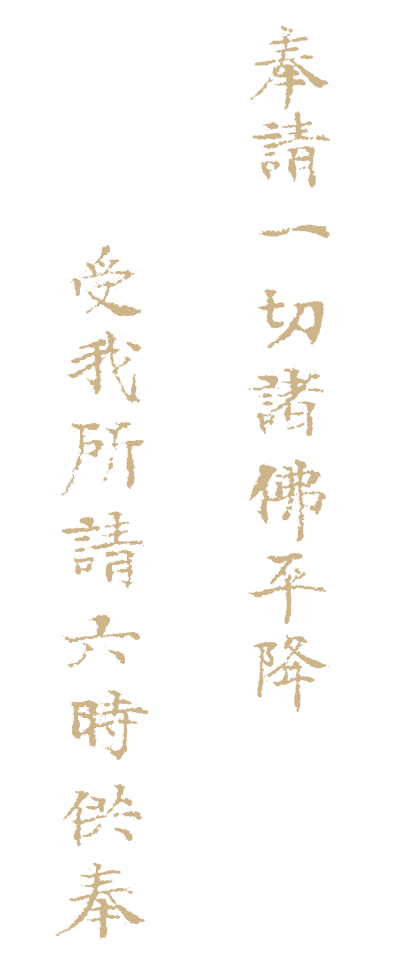 奉請一切諸佛平降
受我所請六時供奉